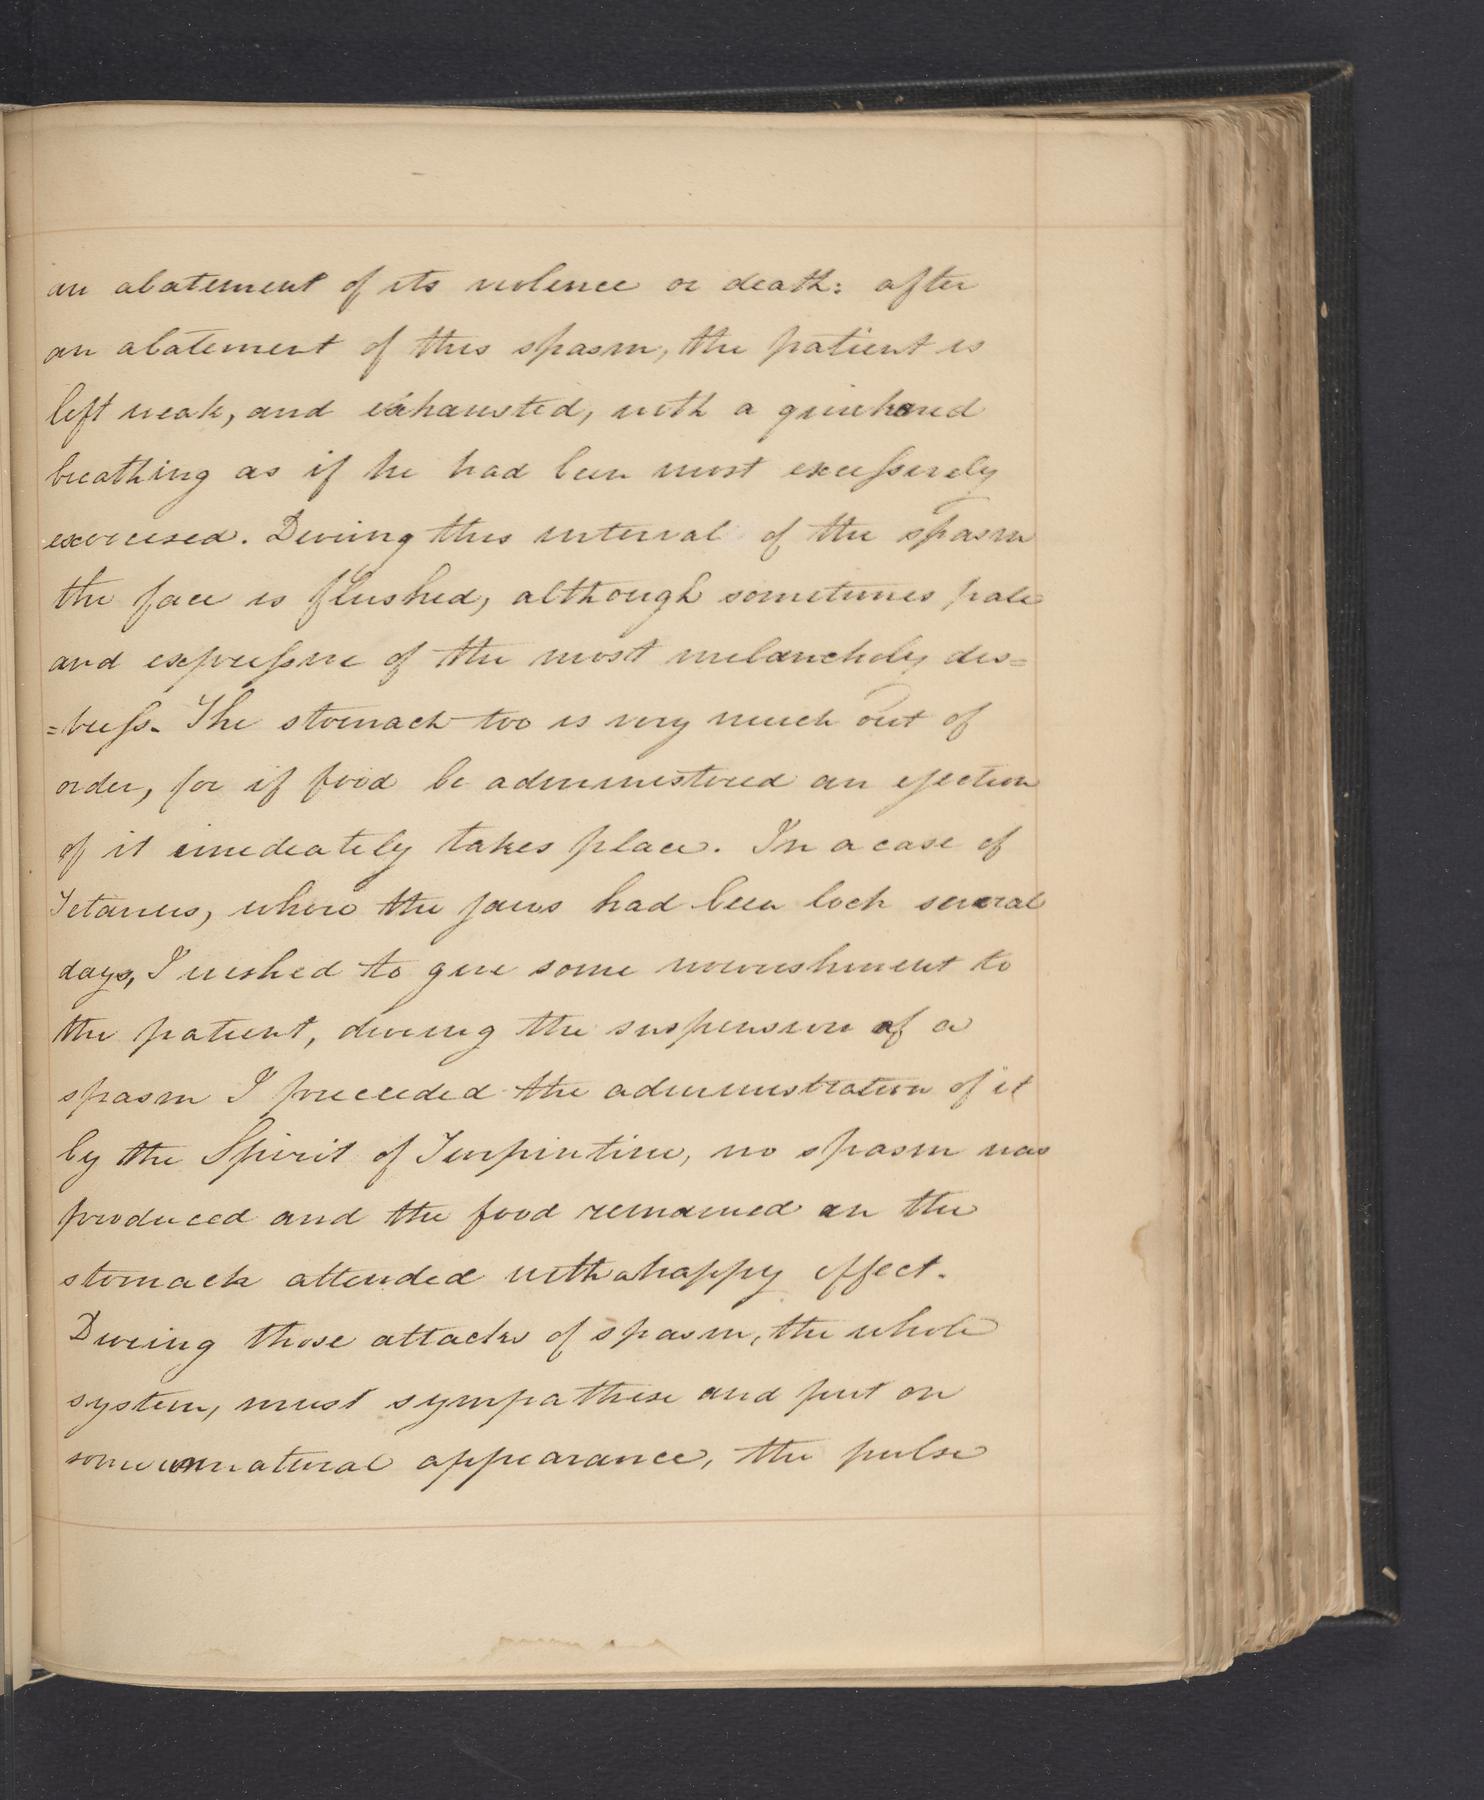 an abatement of its violence or death: after
an abatement of this spasm, the patient is
left weak, and exhausted, with a quickened
breathing as if he had been most excessively
exercised. During this interval of the spasm
the face is flushed, although sometimes pale
and expressive of the most melancholy dis=
=tress. The stomach too is very much out of
order, for if food be administered an ejection
of it imediately takes place. In a case of
Tetanus, where the jaws had been lock several
days, I wished to give some nourishment to
the patient, during the suspension of a
spasm I preceeded the administration of it
by the Spirit of Turpintine, no spasm was
produced and the food remained on the
stomach attended with a happy effect.
During those attacks of spasm, the whole
system, must sympathise and put on
some unnatural appearance, the pulse